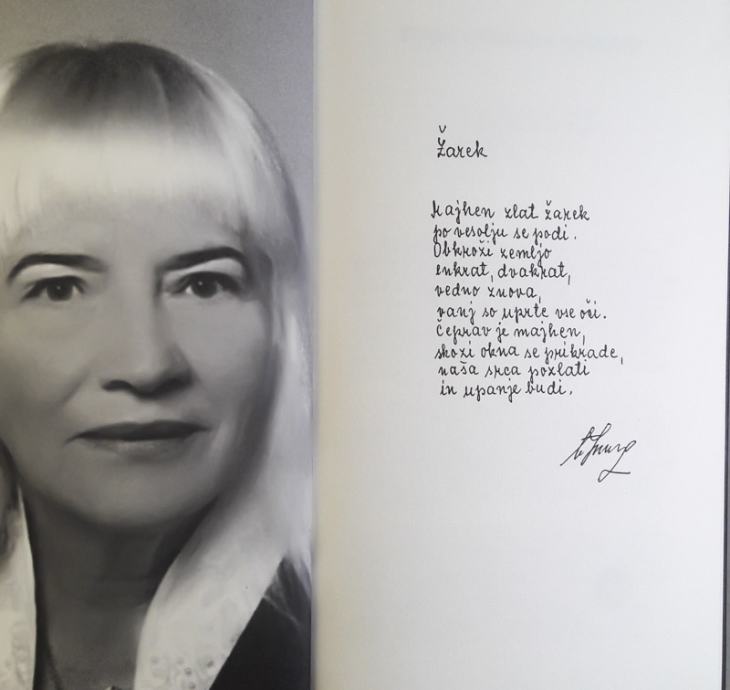 Žarek
Majhen zlat žarek
po vesolju se podi.
Obkroži zemljo
enkrat, dvakrat,
vedno znova,
vanj so uprte vse oči.
Čeprav je majhen,
skozi okna se prikrade,
naša srca pozlati
in upanje budi.